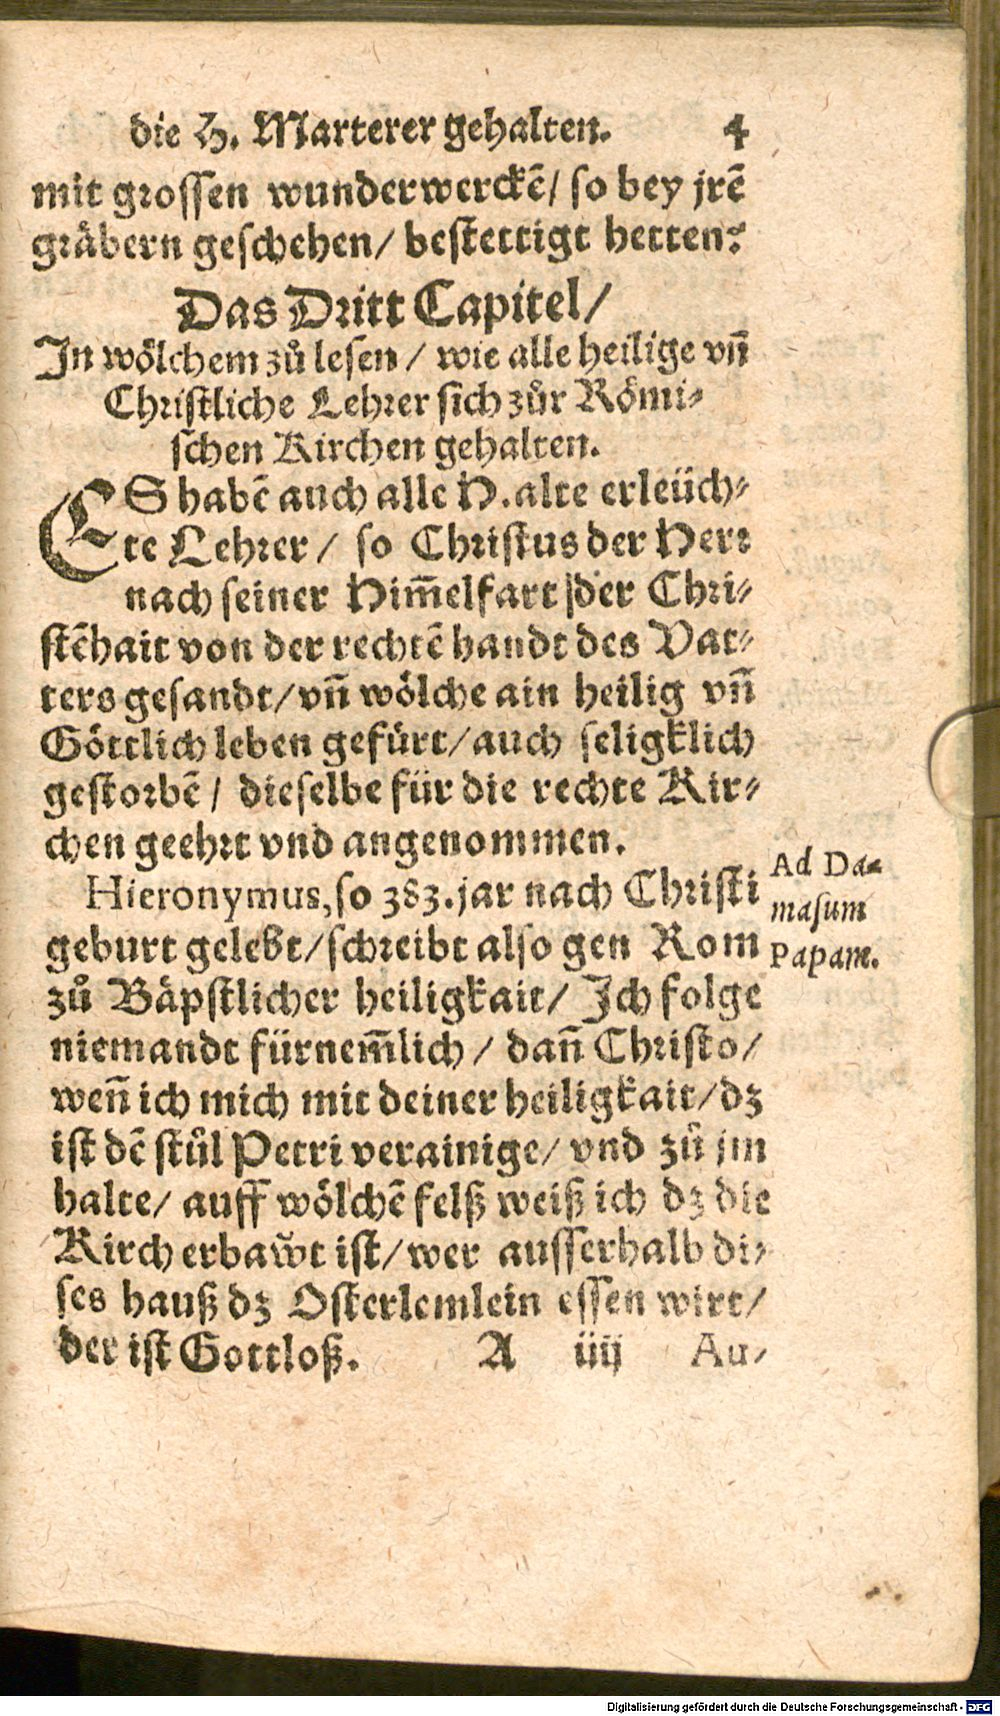 die H. Marterer gehalten. 4
mit grossen wunderwerckē/ so bey jrē
gräbern geschehen/ bestettigt hetten?
Das Dritt Capitel/
In wölchem zů lesen / wie alle heilige vñ
Christliche Lehrer sich zůr Römi-
schen Kirchen gehalten.
ES habē auch alle H. alte erleüch-
te Lehrer / so Christus der Herr
nach seiner Him̄elfart der Chri-
stēhait von der rechtē handt des Vat-
ters gesandt/ vñ wölche ain heilig vñ
Göttlich leben gefürt/ auch seligklich
gestorbē / dieselbe für die rechte Kir-
chen geehrt vnd angenommen.
Hieronymus, so 383. jar nach Christi
geburt gelebt/ schreibt also gen Rom
zů Bäpstlicher heiligkait/ Ich folge
niemandt fürnem̄lich / dañ Christo/
weñ ich mich mit deiner heiligkait/ dz
ist dē stůl Petri verainige/ vnd zů jm
halte/ auff wölchē felß weiß ich dz die
Kirch erbawt ist/ wer ausserhalb di-
ses hauß dz Osterlemlein essen wirt/
der ist Gottloß. A iiij Au-
Ad Da-
masum
Papam.
Digitalisierung gefördert durch die Deutsche Forschungsgemeinschaft - DFG